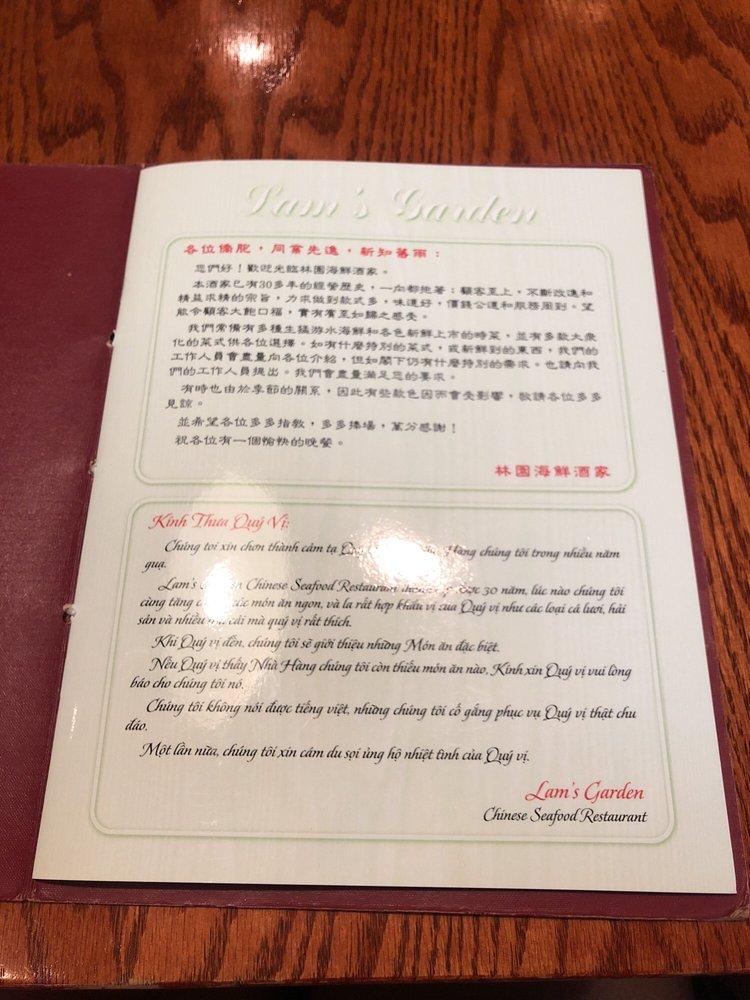 Lam's Garden
各位僑胞，同業先進，新知舊雨：
您們好！歡迎光臨林園海鮮酒家。
本酒家已有30多年的經營歷史，一向都抱著：顧客至上，不斷改進和
精益求精的宗旨，力求做到款式多，味道好，價錢公道和服務周到。望
能令顧客大飽口福，實有賓至如歸之感受。
我們常備有多種生猛游水海鮮和各色新鮮上市的時菜，並有多款大衆
化的菜式供各位選擇。如有什麼特別的菜式，或新鮮到的東西，我們的
工作人員會盡量向各位介紹，但如閣下仍有什麼特別的需求。也請向我
們的工作人員提出。我們會盡量滿足您的要求。
有時也由於季節的關系，因此有些款色因而會受影響，敬請各位多多
見諒。
並希望各位多多指教，多多捧場，萬分感謝！
祝各位有一個愉快的晚餐。
林園海鮮酒家
Kính Thưa Quý Vị:
Chúng toi xin chơn thành cảm tạ Hàng chúng tôi trong nhiều năm
qua.
Lam's Chinese Seafood Restaurant 30 năm, lúc nào chúng tôi
cùng tăng các món ăn ngon, và la rất hợp khẩu vị zua Quý vị như các loại cá lươi, hải
sản và nhiều cải mà quý vị rất thích.
Khi Quý vị đến, chúng tôi sẽ giới thiệu những Món ăn đặc biệt.
Nếu Quý vị thấy Nhà Hàng chúng tôi còn thiếu món ăn nào, Kính xin Quý vị vui lòng
báo cho chúng tôi nó.
Chúng tôi không nói được tiếng việt, những chúng tôi cố gắng phục vụ Quý vị thật chu
đáo.
Một lần nữa, chúng tôi xin cám du sọi ủng hộ nhiệt tình của Quý vị.
Lam's Garden
Chinese Seafood Restaurant